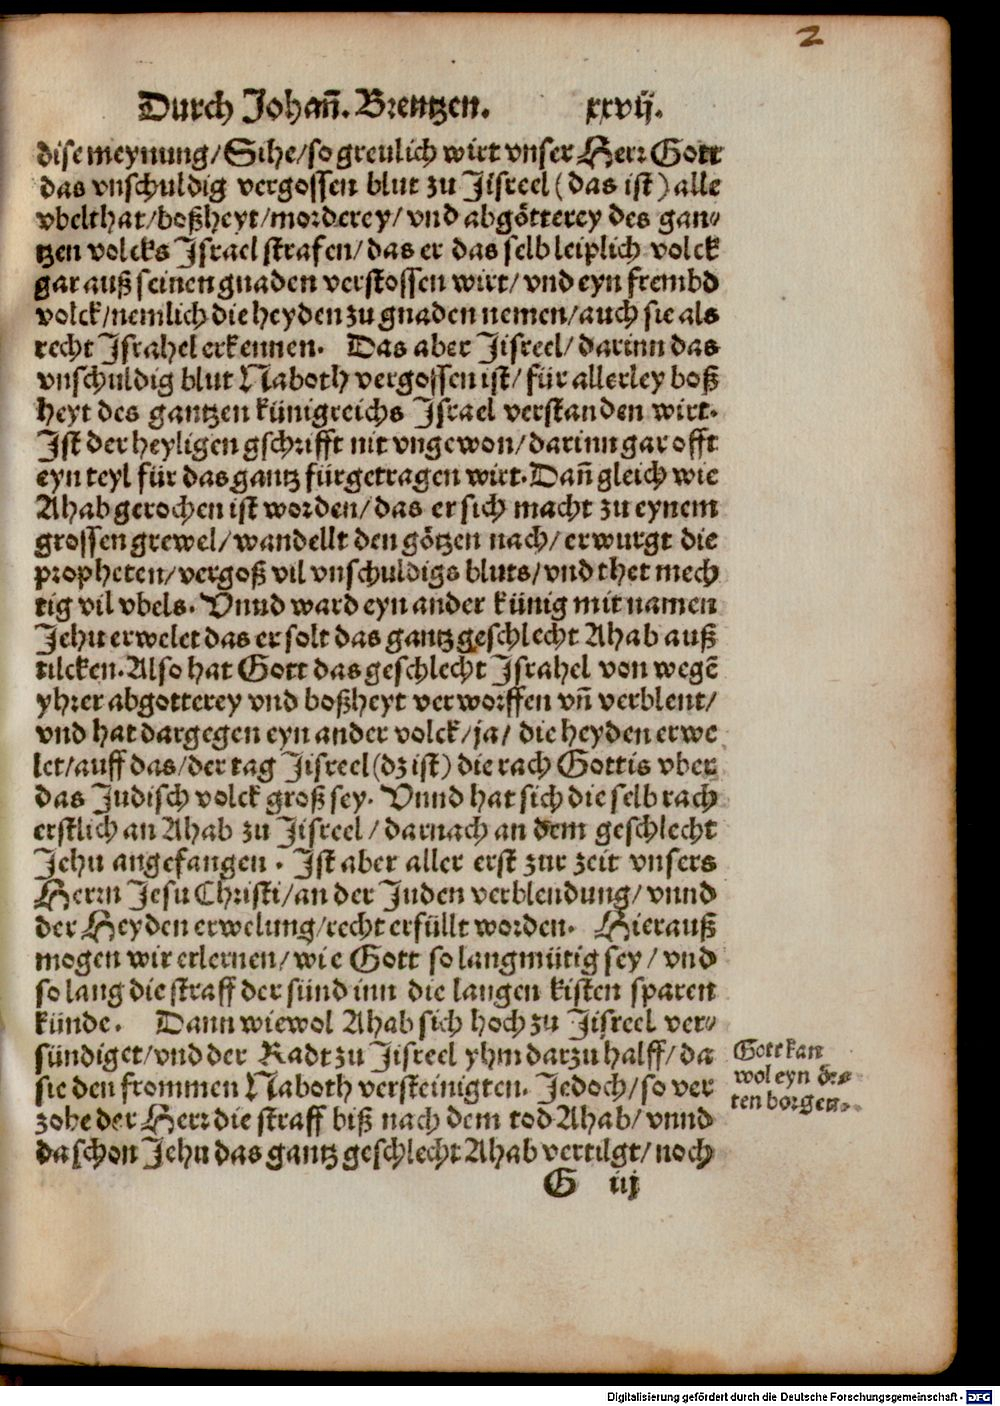 2
Durch Johañ. Brentzen. xxvij.
dise meynung/ Sihe/ so greulich wirt vnser Herr Gott
das vnschuldig vergossen blut zu Jisreel (das ist) alle
vbelthat/ boßheyt/ morderey/ vnd abgötterey des gan⸗
tzen volcks Israel strafen/ das er das selb leiplich volck
gar auß seinen gnaden verstossen wirt/ vnd eyn frembd
volck/ nemlich die heyden zu gnaden nemen/ auch sie als
recht Israhel erkennen. Das aber Jisreel/ darinn das
vnschuldig blut Naboth vergossen ist/ für allerley boß
heyt des gantzen künigreichs Israel verstanden wirt.
Ist der heyligen gschrifft nit vngewon/ darinn gar offt
eyn teyl für das gantz fürgetragen wirt. Dañ gleich wie
Ahab gerochen ist worden/ das er sich macht zu eynem
grossen grewel/ wandellt den götzen nach/ erwurgt die
propheten/ vergoß vil vnschuldigs bluts/ vnd thet mech
tig vil vbels. Vnnd ward eyn ander künig mit namen
Jehu erwelet das er solt das gantz geschlecht Ahab auß
tilcken. Also hat Gott das geschlecht Israhel von wegē
yhrer abgotterey vnd boßheyt verworffen vñ verblent/
vnd hat dargegen eyn ander volck/ ja/ die heyden erwe
let/ auff das/ der tag Jisreel (dz ist) die rach Gottis vber
das Judisch volck groß sey. Vnnd hat sich die selb rach
erstlich an Ahab zu Jisreel/ darnach an dem geschlecht
Jehu angefangen. Ist aber aller erst zur zeit vnsers
Herrn Jesu Christi/ an der Juden verblendung/ vnnd
der Heyden erwelung/ recht erfüllt worden. Hierauß
mogen wir erlernen/ wie Gott so langmütig sey/ vnd
so lang die straff der sünd inn die langen kisten sparen
künde. Dann wiewol Ahab sich hoch zu Jisreel ver⸗
sündiget/ vnd der Radt zu Jisreel yhm darzu halff/ da
sie den frommen Naboth versteinigten. Jedoch/ so ver
zohe der Herr die straff biß nach dem tod Ahab/ vnnd
da schon Jehu das gantz geschlecht Ahab vertilgt/ noch
Gott kan
wol eyn
ten borgen.
G iij
Digitalisierung gefördert durch die Deutsche Forschungsgemeinschaft - DFG